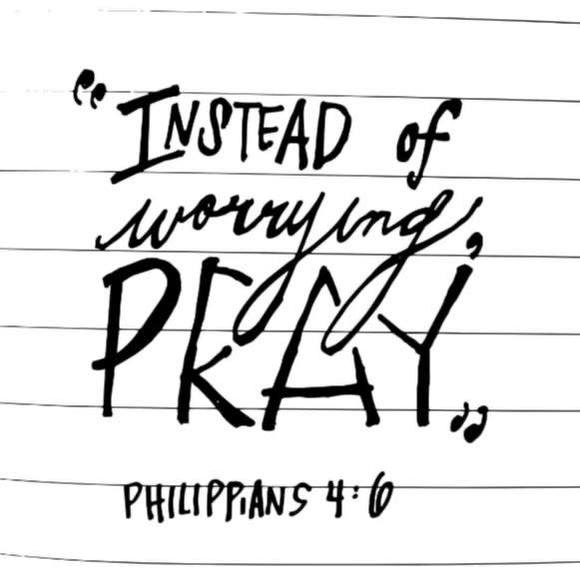 “INSTEAD of
worrying,
PRAY”
PHILIPPIANS 4:6